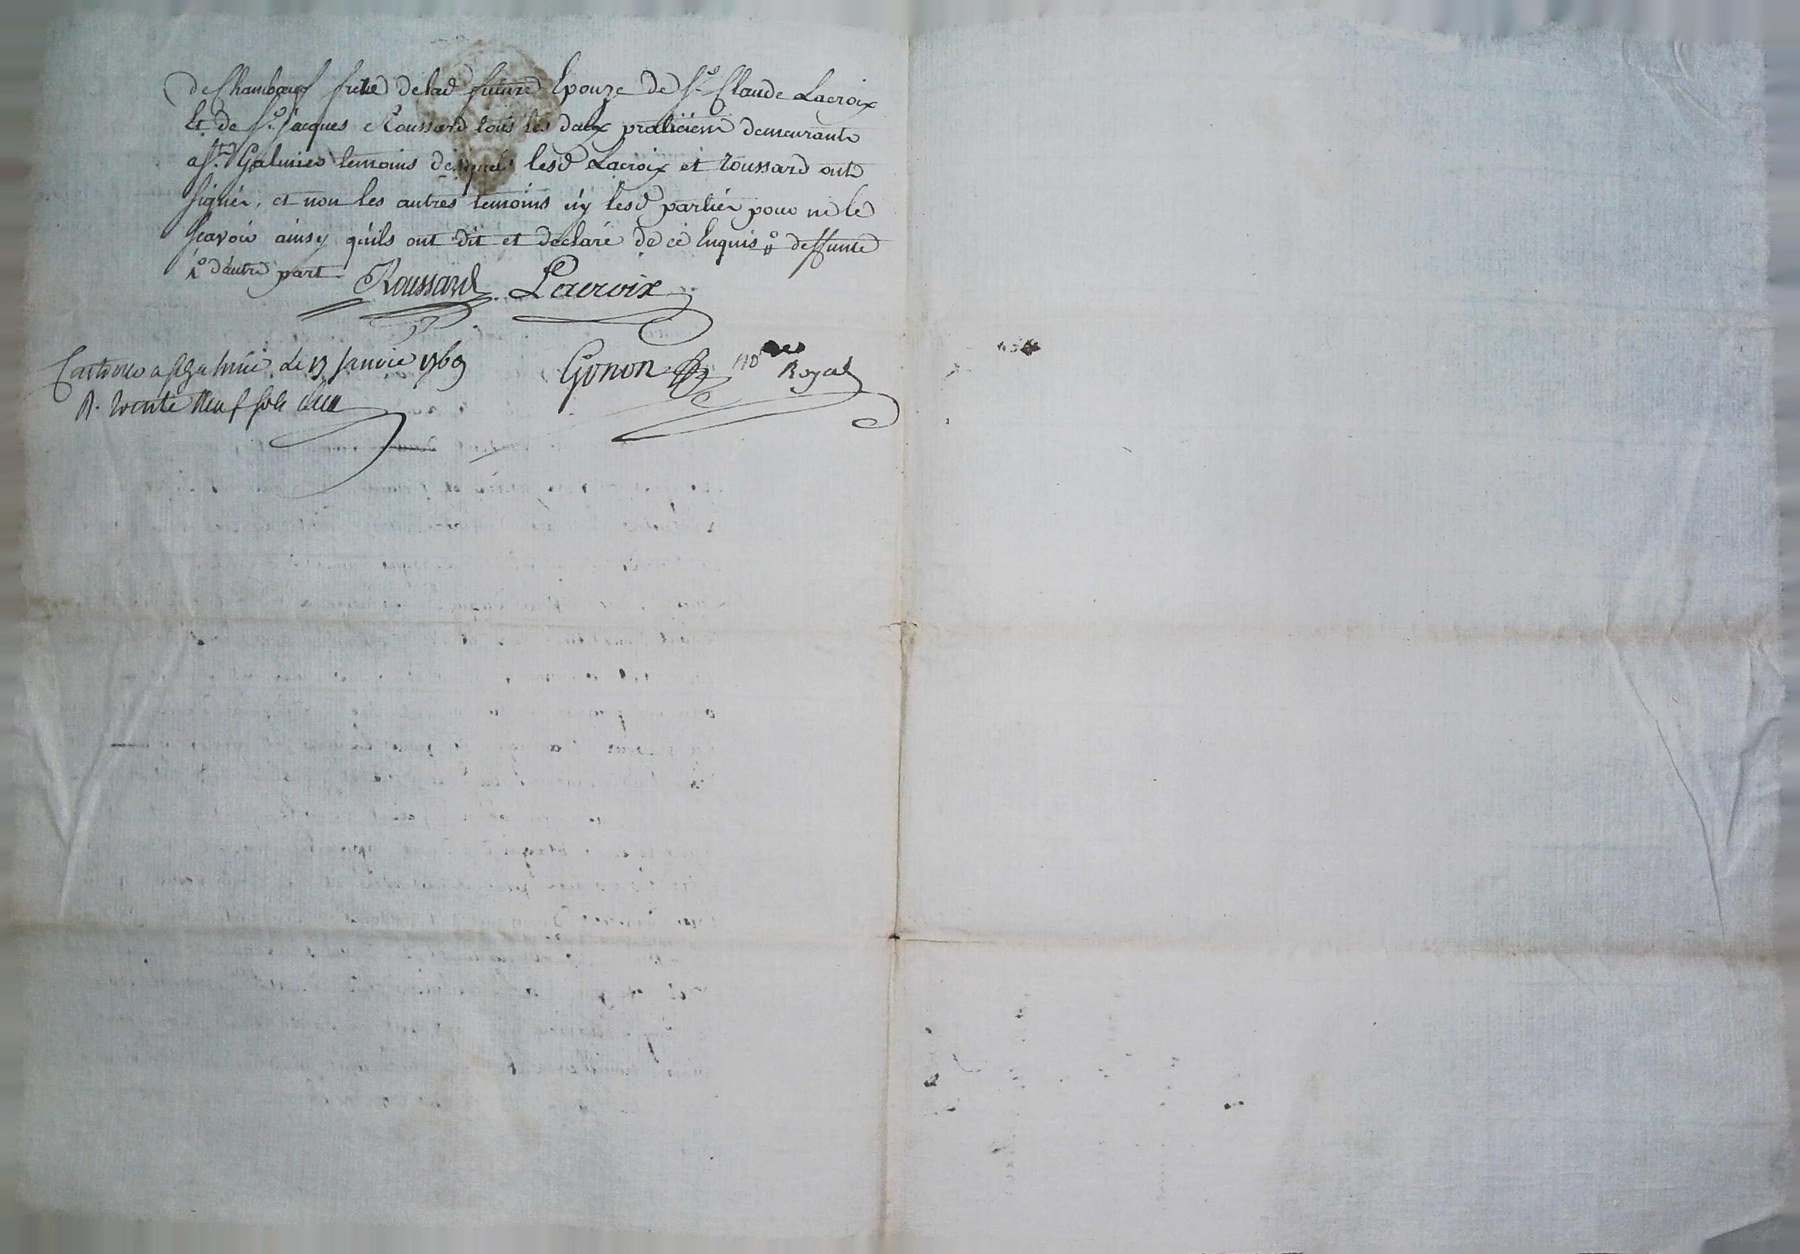 de Chambœuf frere de lad future Epouze de Sr. Claude Lacroix
Et de Sr. Jacques Roussard tous les deux praticiens demeurants
a St. Galmier temoins desquels lesd Lacroix et roussard onts
signér, et non les autres temoins ny lesd partiér pour ne le
scavoir ainsy quils ont dit et declaré de ce Enquis deffunte
d'autre part
Roussard Lacroix
Controllé a St Galmier le 13 Janvier 1769
R. trente neuf sols
Gonon nore Royal